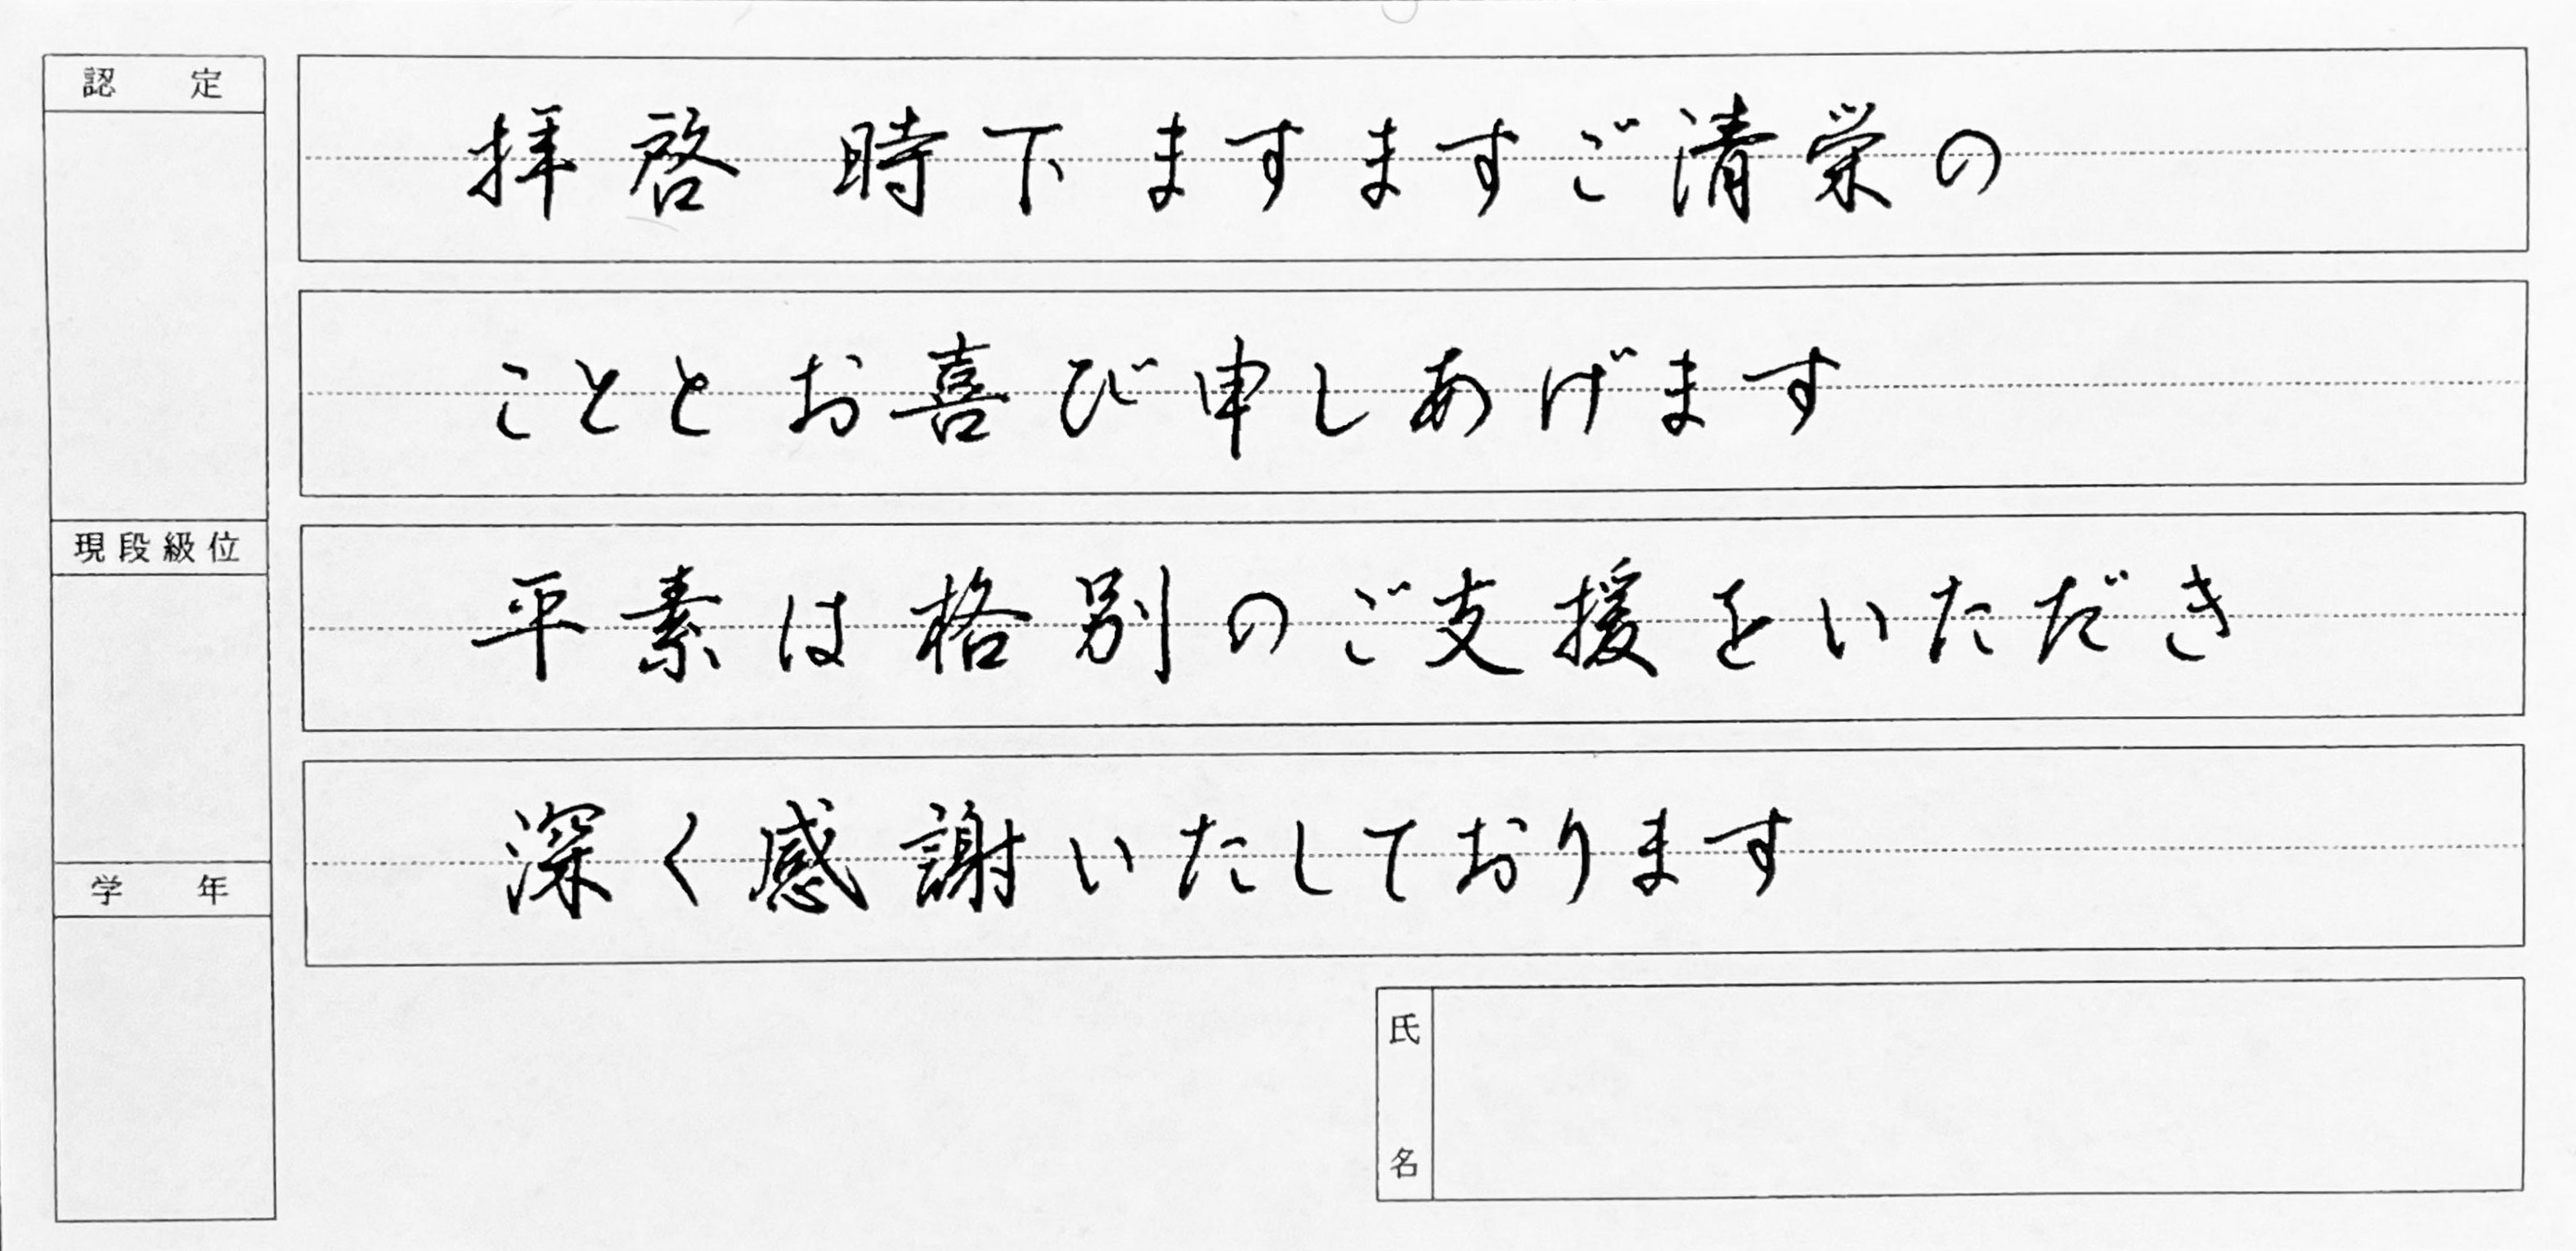 認定
拝啓 時下ますますご清栄の
こととお喜び申しあげます
現段級位
平素は格別のご支援をいただき
学年
深く感謝いたしております
氏名